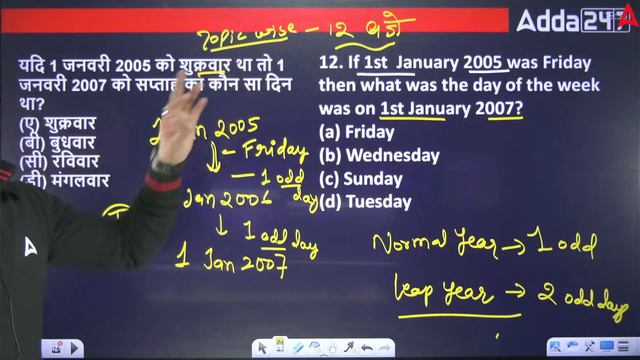 Topic wise - 12 बजे
Adda247
यदि 1 जनवरी 2005 को शुक्रवार था तो 1
जनवरी 2007 को सप्ताह का कौन सा दिन
था?
(ए) शुक्रवार
(बी) बुधवार
(सी) रविवार
(डी) मंगलवार
12. If 1st January 2005 was Friday
then what was the day of the week
was on 1st January 2007?
(a) Friday
(b) Wednesday
(c) Sunday
(d) Tuesday
Jan 2005
- Friday
- 1 odd
day
Jan 2006
1 odd day
1 Jan 2007
Normal Year → 1 odd
Leap Year → 2 odd days